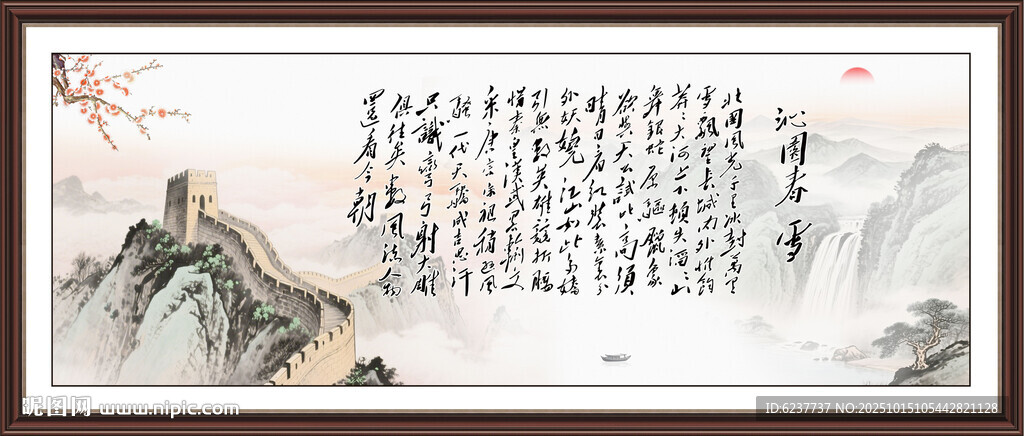 沁園春 雪
北國風光千里冰封萬里
雪飄望长城内外惟餘
莽々大河上下頓失滔々山
舞銀蛇原驅臘象
欲與天公試比高須
晴日看红裝素裹分
外妖嬈江山如此多嬌
引無數英雄競折腰
惜秦皇漢武略输文
采唐宗宋祖稍逊風
騷一代天驕成吉思汗
只識彎弓射大雕
俱往矣數風流人物
還看今朝
昵图网 www.nipic.com
ID:6237737 NO:20251015105442821128